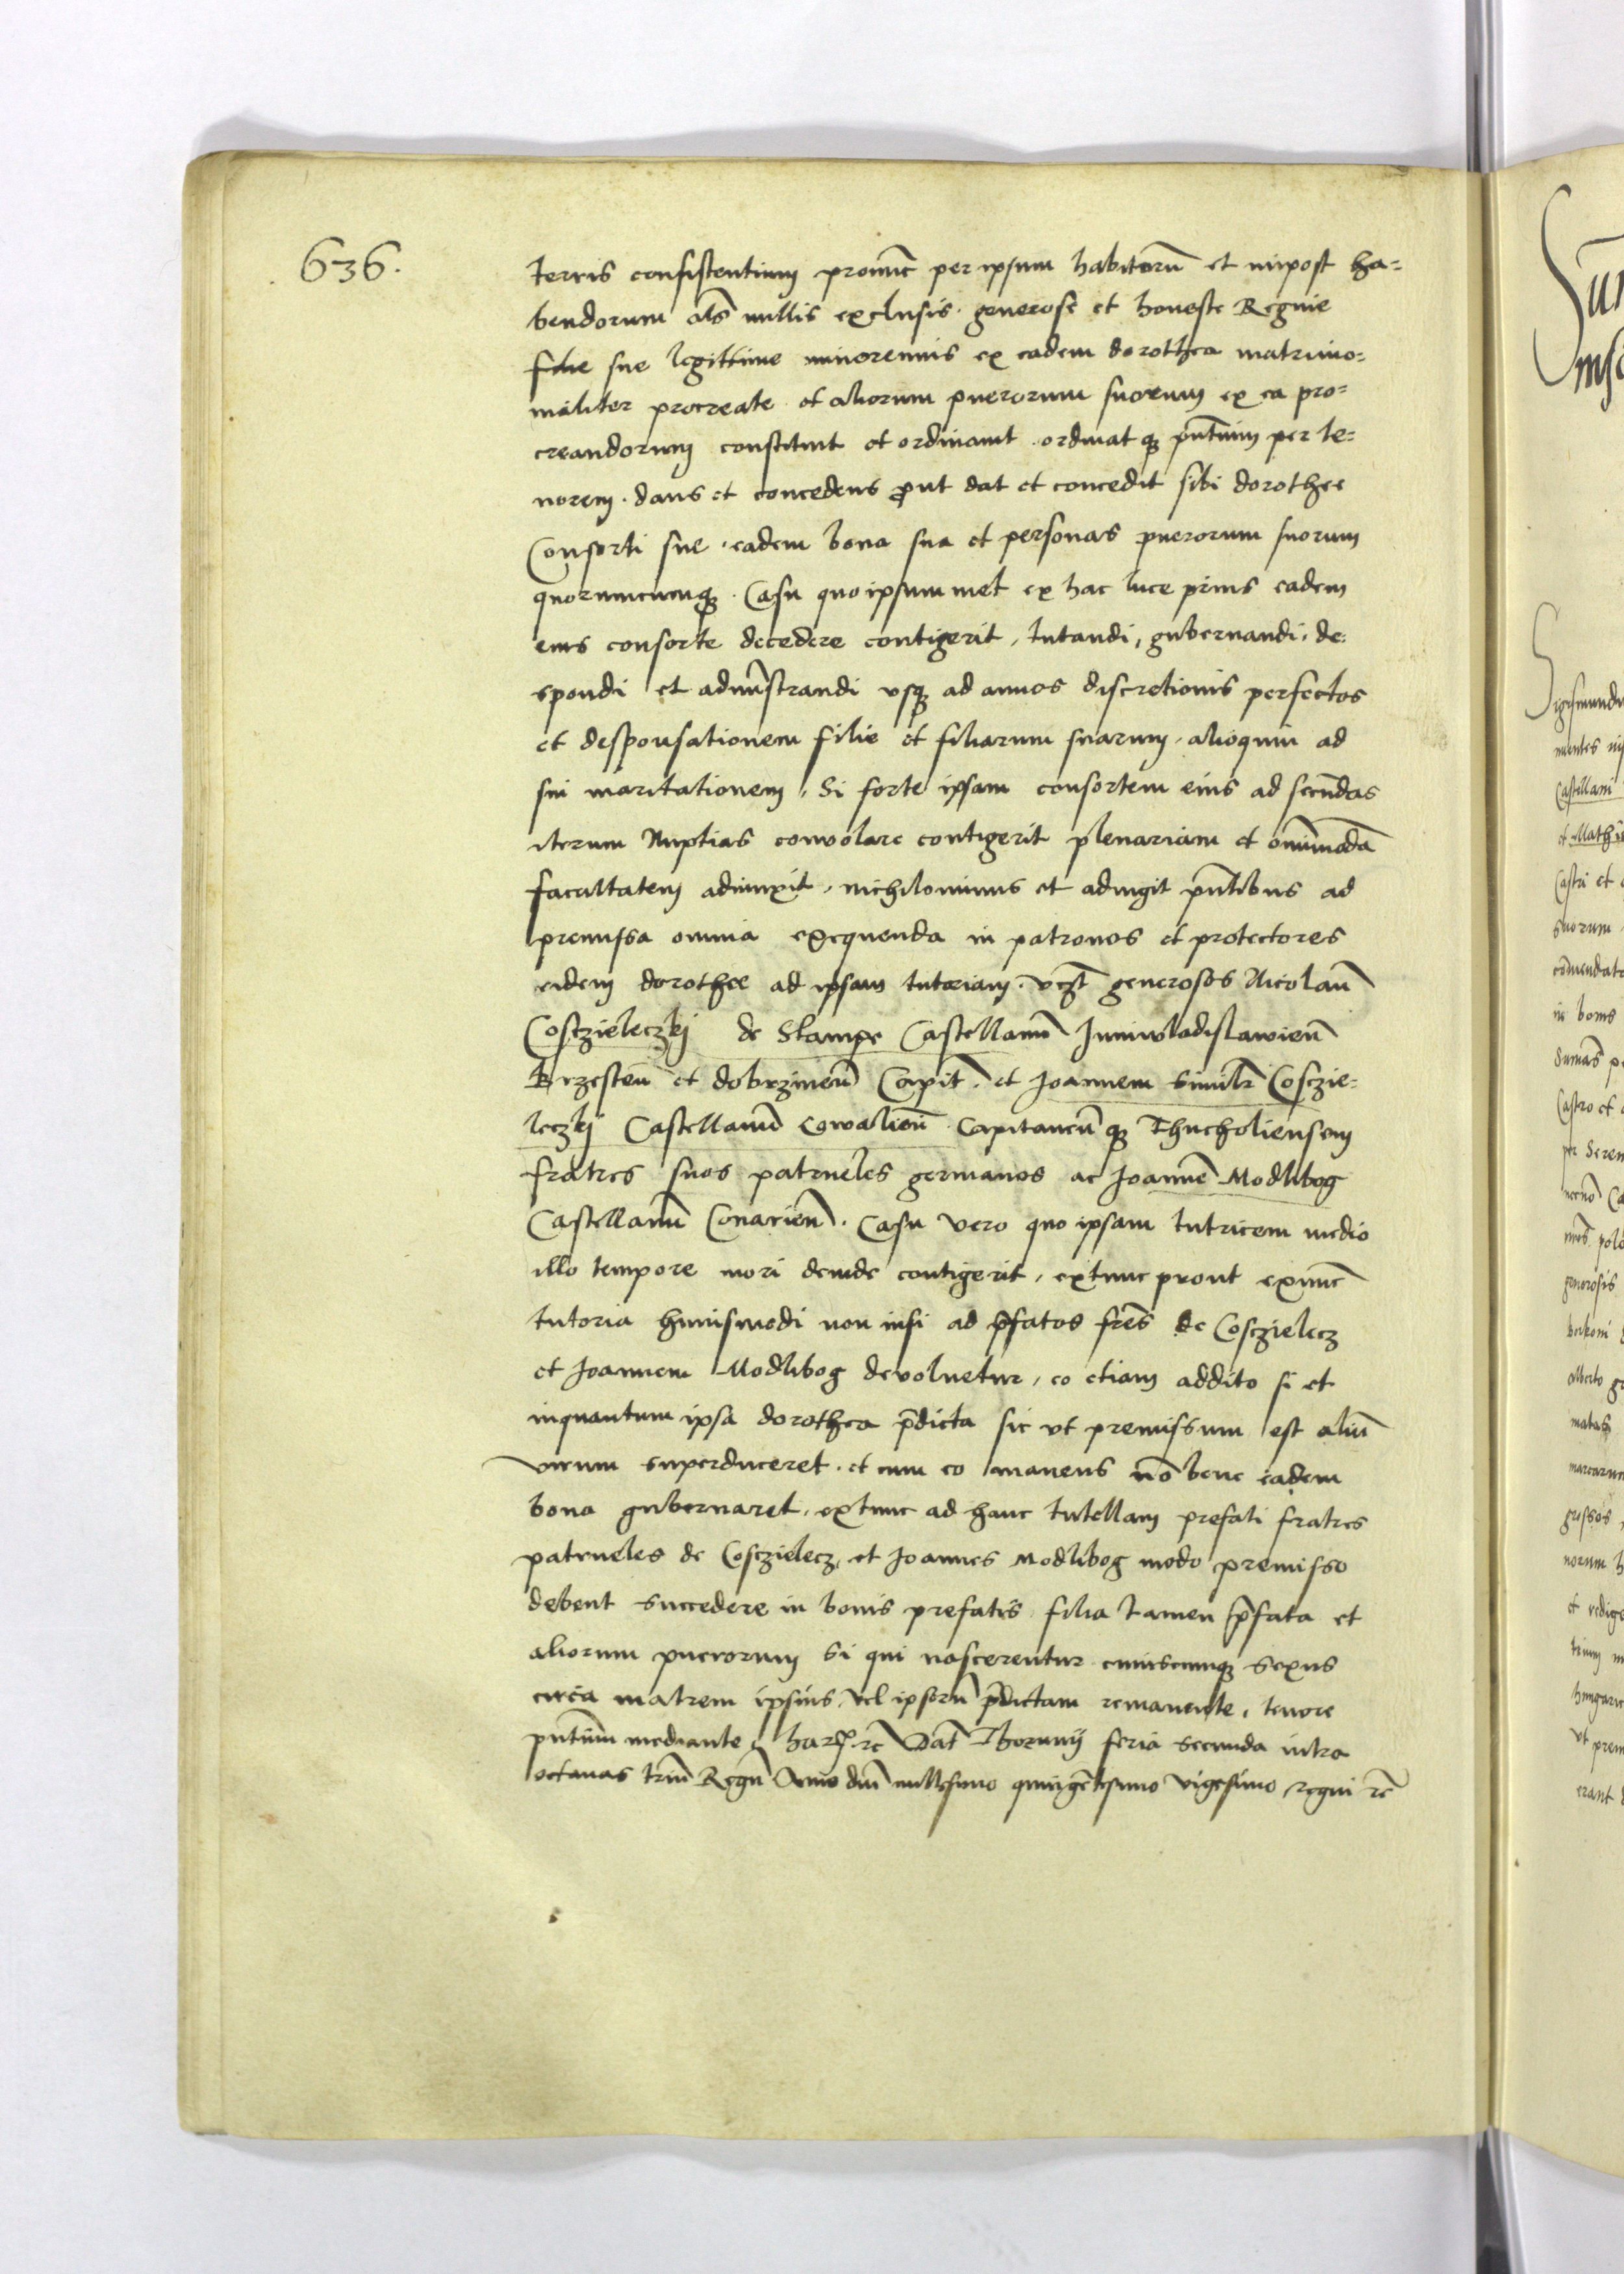 636.
terris consistentium pronuc̄ per ipsum habitorū et inipost ha=
bendorum als̄ nullis exclusis. generose et honeste Regine
filie sue legittime minorennis ex eadem dorothea matrimo=
nialiter procreate et aliorum puerorum suorum ex ea pro=
creandorum constituit et ordinauit. ordinatq3 pn̄tium per te=
norem. dans et concedens put dat et concedit sibi dorothee
Consorti sue. eadem bona sua et personas puerorum suorum
quorumcumq3. Casu quo ipsummet ex hac luce prius eadem
eius consorte decedere contigerit, tutandi, gubernandi, de=
spondi et admīstrandi vsq3 ad annos discretionis perfectos
et desponsationem filie et filiarum suarum, alioquin ad
sui maritationem, Si forte ipsam consortem eius ad secūdas
iterum Nuptias conuolare contigerit plenariam et omīmodā
facultatem adiunxit, nichilominus et adiugit pn̄tibus ad
premissa omnia exequenda in patronos et protectores
eidem dorothee ad ipsam tutoriam. vcz̄t generosos Nicolaū
Cosczieleczkj de Skampe Castellanū Juniwladislawieñ
Brzesteñ et dobrzineñ Capit̄. et Joannem similr̄ Cosczie=
leczkj Castellanū Cowalieñ. Capitaneūq3 Thucholiensem
fratres suos patrueles germanos ac Joannē Modlibog
Castellanū Conarieñ. Casu vero quo ipsam tutricem medio
illo tempore mori deinde contigerit, extunc prout exnūc
tutoria huiusmodi non nisi ad p̄fatos fres̄ de Cosczielecz
et Joannem Modlibog deuoluetur, eo etiam addito si et
inquantum ipsa dorothea p̄dicta sic vt premissum est aliū
virum superduceret. et cum eo manens nō bene eadem
bona gubernaret, extunc ad hanc tutellam prefati fratres
patrueles de Cosczielecz, et Joannes Modlibog modo premisso
debent succedere in bonis prefatis, filia tamen p̄fata et
aliorum puerorum si qui nascerentur cuiuscumq3 sexus
circa matrem ipsius, vel ipsorū p̄dictam remanente, tenore
pn̄tium mediante, har 2c Dat̄ Thorunij feria secunda intra
octauas triū Regū Anno dn̄i millesimo quingētesimo vigesimo regni 2c
Sigismundus
Castellani
Castri et
suorum
in bonis
Sumās
Castro et
generosis
alberto
grossos
vt prem
erant